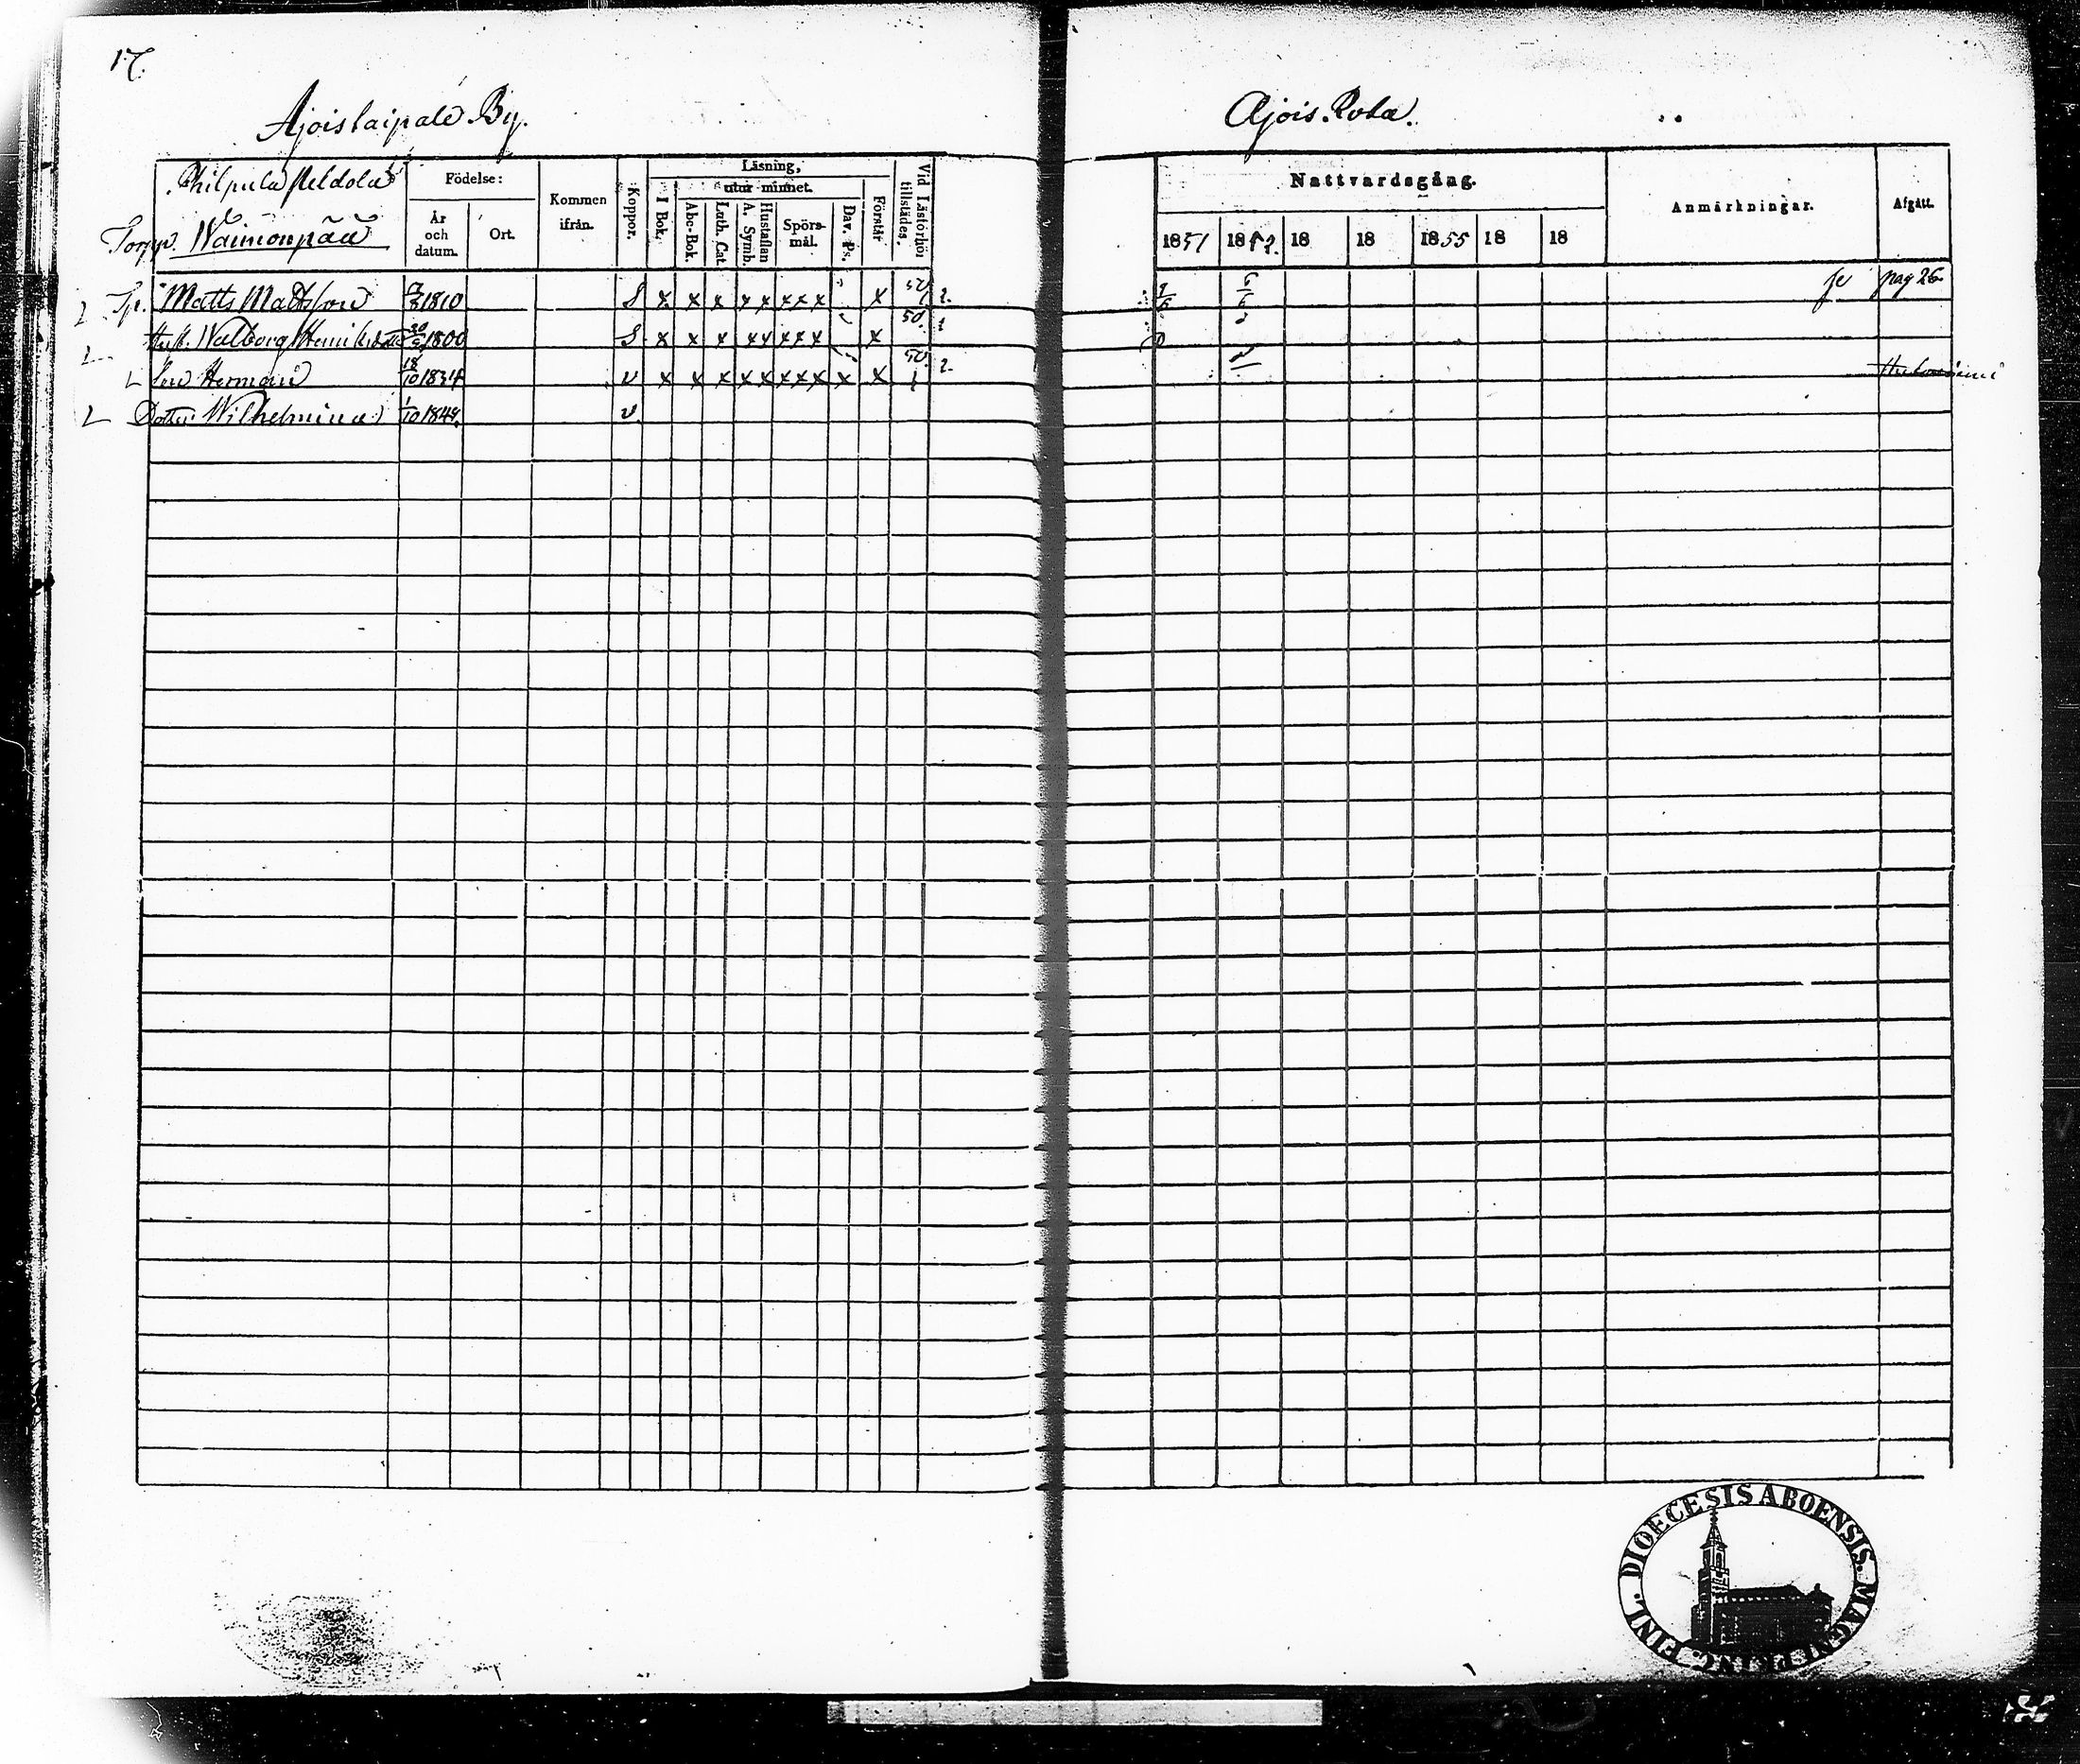 17.
Ajoistaipale By.
Philpula
Torpp. Waimonpää
Födelse:
År och datum.
Ort.
Kommen ifrån.
Koppor.
Läsning,
utur minnet.
I Bok.
Abc-Bok.
Luth. Cat.
A. Symb.
Hustaflan
Spörs-mål.
Dav. Ps.
Förstår
Vid Läsförhör tillstädes.
Tp. Matts Mattsson 1810 S x x x x x x x x x
Hust. Walborg Henriksdtr 1800 S x x x x x x x x x
Son Herman 18/10 1834 v x x x x x x x x x x
Dotter Wilhelmina 1/10 1848. v.
Ajois. Rota.
Nattvardsgång.
1851 1852. 18 18 1855 18 18
Anmärkningar.
Afgått.
se pag 26
DIOECESIS ABOENSIS. MAGNI PRINC. FINL.